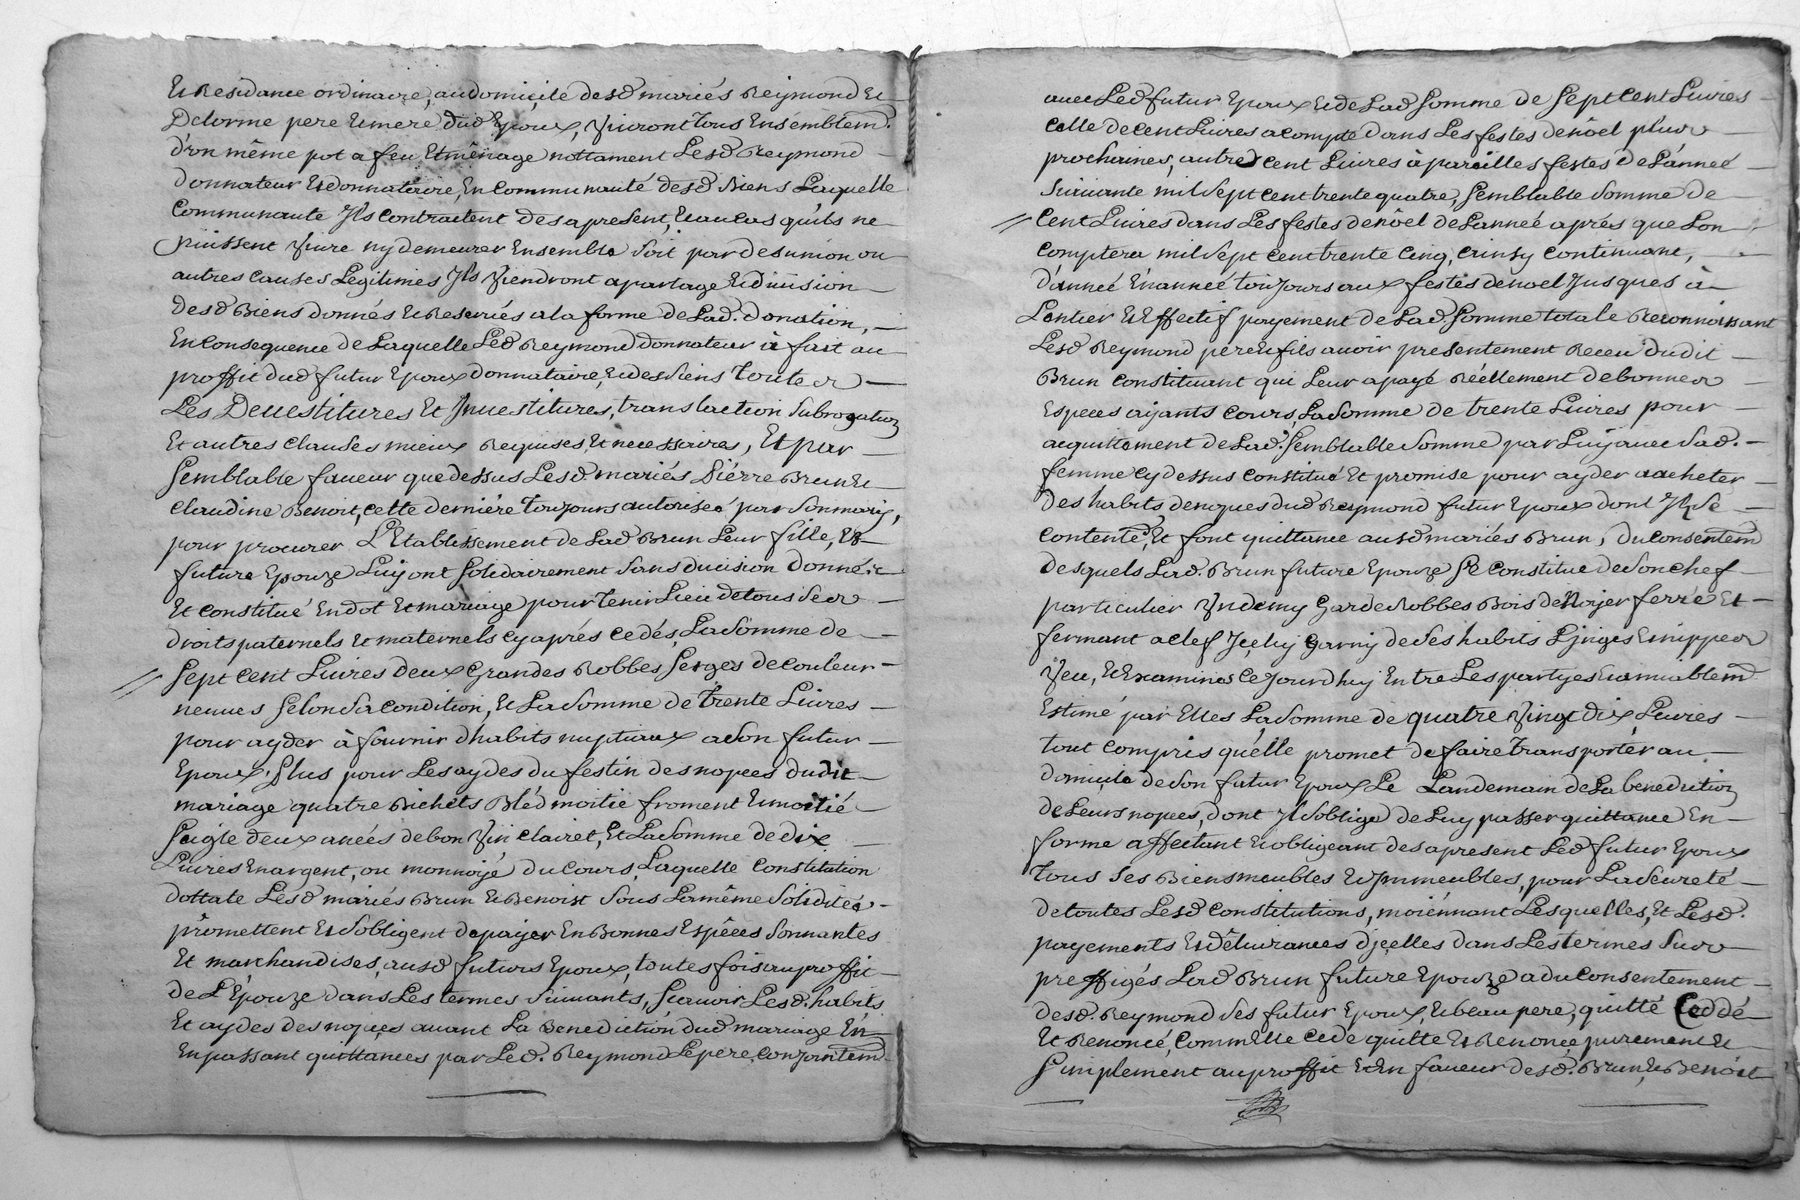 Et Residance ordinaire, au domicile desd mariés Reymond Et
Delorme pere Et mere dud Epoux, Vivront tous Ensemblem.
d'un même pot a feu Et ménage nottament Lesd Reymond
donnateur Et donnataire, En communauté desd Biens Laquelle
Communaute Ils contractent des apresent, Et au cas quils ne
puissent Vivre ny demeurer Ensemble soit par desunion ou
autres causes Legitimes Ils Viendront a partage Et division
desd Biens donnés Et Reservés a la forme de Lad. donation,
En consequence de Laquelle Led Reymond donnateur à fait au
proffit dud futur Epoux donnataire, Et des siens toutes
Les Devestitures Et Investitures, translaction subrogation
Et autres clauses mieux Requises Et necessaires, Et par
semblable faveur que dessus Lesd. mariés Piérre Brun Et
Claudine Benoit, cette derniére toujours autorisée par son mary,
pour procurer L'Etablissement de Lad Brun Leur fille, Et
future Epouze Luy ont solidairement sans division donné
Et constitué En dot Et mariage pour tenir Lieu de tous ses
droits paternels Et maternels cy aprés cedés, La somme de
sept cent Livres deux Grandes Robbes serges de couleur
neuves selon sa condition, Et La somme de trente Livres
pour ayder à fournir d'habits nuptiaux a son futur
Epoux, Plus pour Les aydes du festin des nopces dudit
mariage quatre Bichets Bléd moitie froment Et moitié
seigle deux aneés de bon Vin clairet, Et La somme de dix
Livres En argent, ou monnoyé du cours, Laquelle constitution
dottale Lesd mariés Brun Et Benoist sous La même soliditeé
promettent Et s'obligent de payer En Bonnes Espêces sonnantes
Et marchandises, ausd futurs Epoux, toutes fois au proffit
de L'Epouze dans Les termes suivants, scavoir Lesd. habits
Et aydes des nopces avant La Benediction dud mariage En
En passant quittances par Led. Reymond Le pere, conjointem.
avec Led futur Epoux Et de Lad somme de sept cent Livres
celle de cent Livres a compte dans Les festes de nôel plus
prochaines, autres cent Livres à pareilles festes de L'anneé
suivante mil sept cent trente quatre, semblable somme de
cent Livres dans Les festes de nôel de L'anneé aprés que Lon
comptera mil sept cent trente cinq, Et ainsy continuant,
d'anneé En anneé toujours aux festes de noel Jusques à
L'entier Et Effectif payement de Lad. somme totale Reconnoissant
Lesd Reymond pere Et fils avoir presentement Receu dudit
Brun constituant qui Leur a payé Réellement de bonnes
Especes ayants cours, La somme de trente Livres pour
acquittement de Lad. semblable somme par Luy avec sad.
femme cy dessus constitué Et promise pour ayder a acheter
des habits de nopces dud Reymond futur Epoux dont Ils se
contente, Et font quittance ausd mariés Brun, du consentem
desquels Lad. Brun future Epouze se constitue de son chef
particulier Un demy Garderobbes Bois de Noyer ferré Et
fermant a clef Icelluy garny de ses habits Linges Et nippes
Veu, Et Examinés Ce Jourdhuy Entre Les partyes Et amiablem
Estimé par Elles La somme de quatre Vingt dix Livres
tout compris qu'elle promet de faire transporter au
domicile de son futur Epoux Le Landemain de La benediction
de Leurs nopces, dont Il s'oblige de Luy passer quittance En
forme affectant Et obligeant des apresent Led futur Epoux
tous ses Biens meubles Et Immeubles, pour La seureté
de toutes Lesd constitutions, moiénnant Lesquelles, Et Lesd.
payements Et délivrances d'icelles dans Les termes sus
preffigés Lad Brun future Epouze a du consentement
desd. Reymond ses futur Epoux Et beau pere, quitté Ceddé
Et Renoncé, Comm'Elle cede quitte Et Renonce purement Et
simplement au proffit Et En faveur desd. Brun Et Benoit